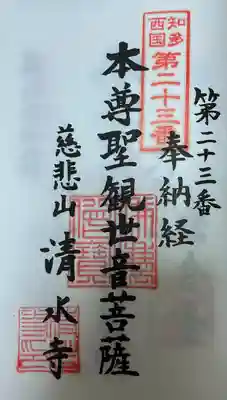 第二十三番
奉納経
知多
西国
第二十三番
本尊聖観世音菩薩
慈悲山 清水寺